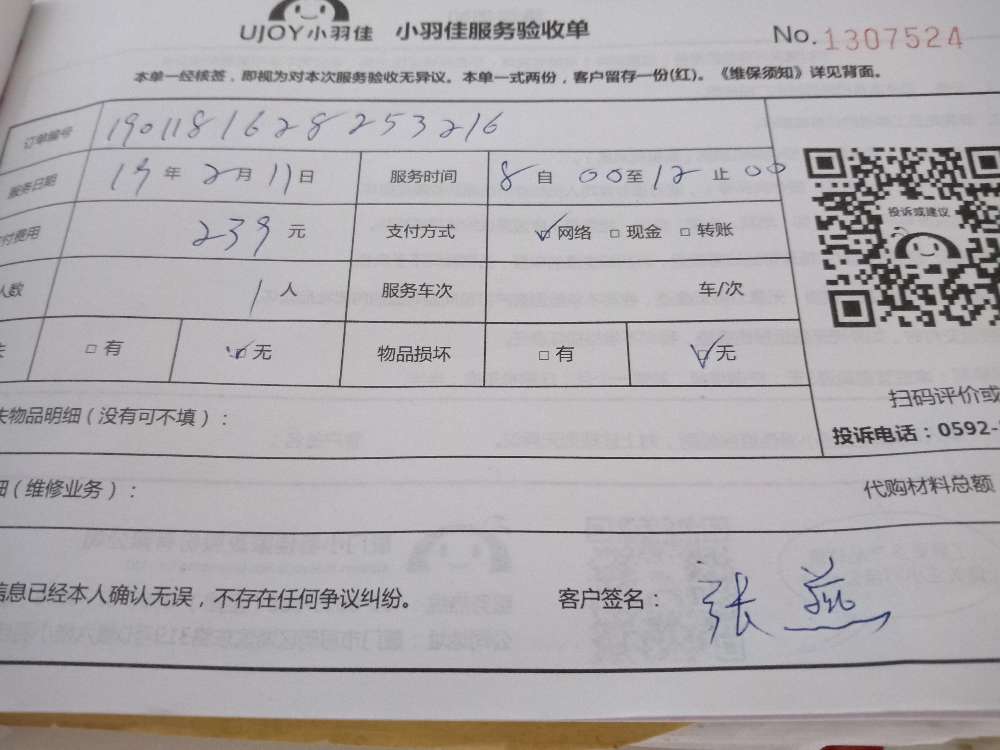 UJOY小羽佳 小羽佳服务验收单 No. 1307524
本单一经核签，即视为对本次服务验收无异议。本单一式两份，客户留存一份(红)。《维保须知》详见背面。
订单编号 190118162825 3216
服务日期 19年2月11日 服务时间 8自00至12止00
付费用 239元 支付方式 网络 现金 转账
投诉或建议
人数 1人 服务车次 车/次
有 无 物品损坏 有 无
失物品明细（没有可不填）：
扫码评价或
投诉电话：0592-
细（维修业务）： 代购材料总额
信息已经本人确认无误，不存在任何争议纠纷。 客户签名：张燕